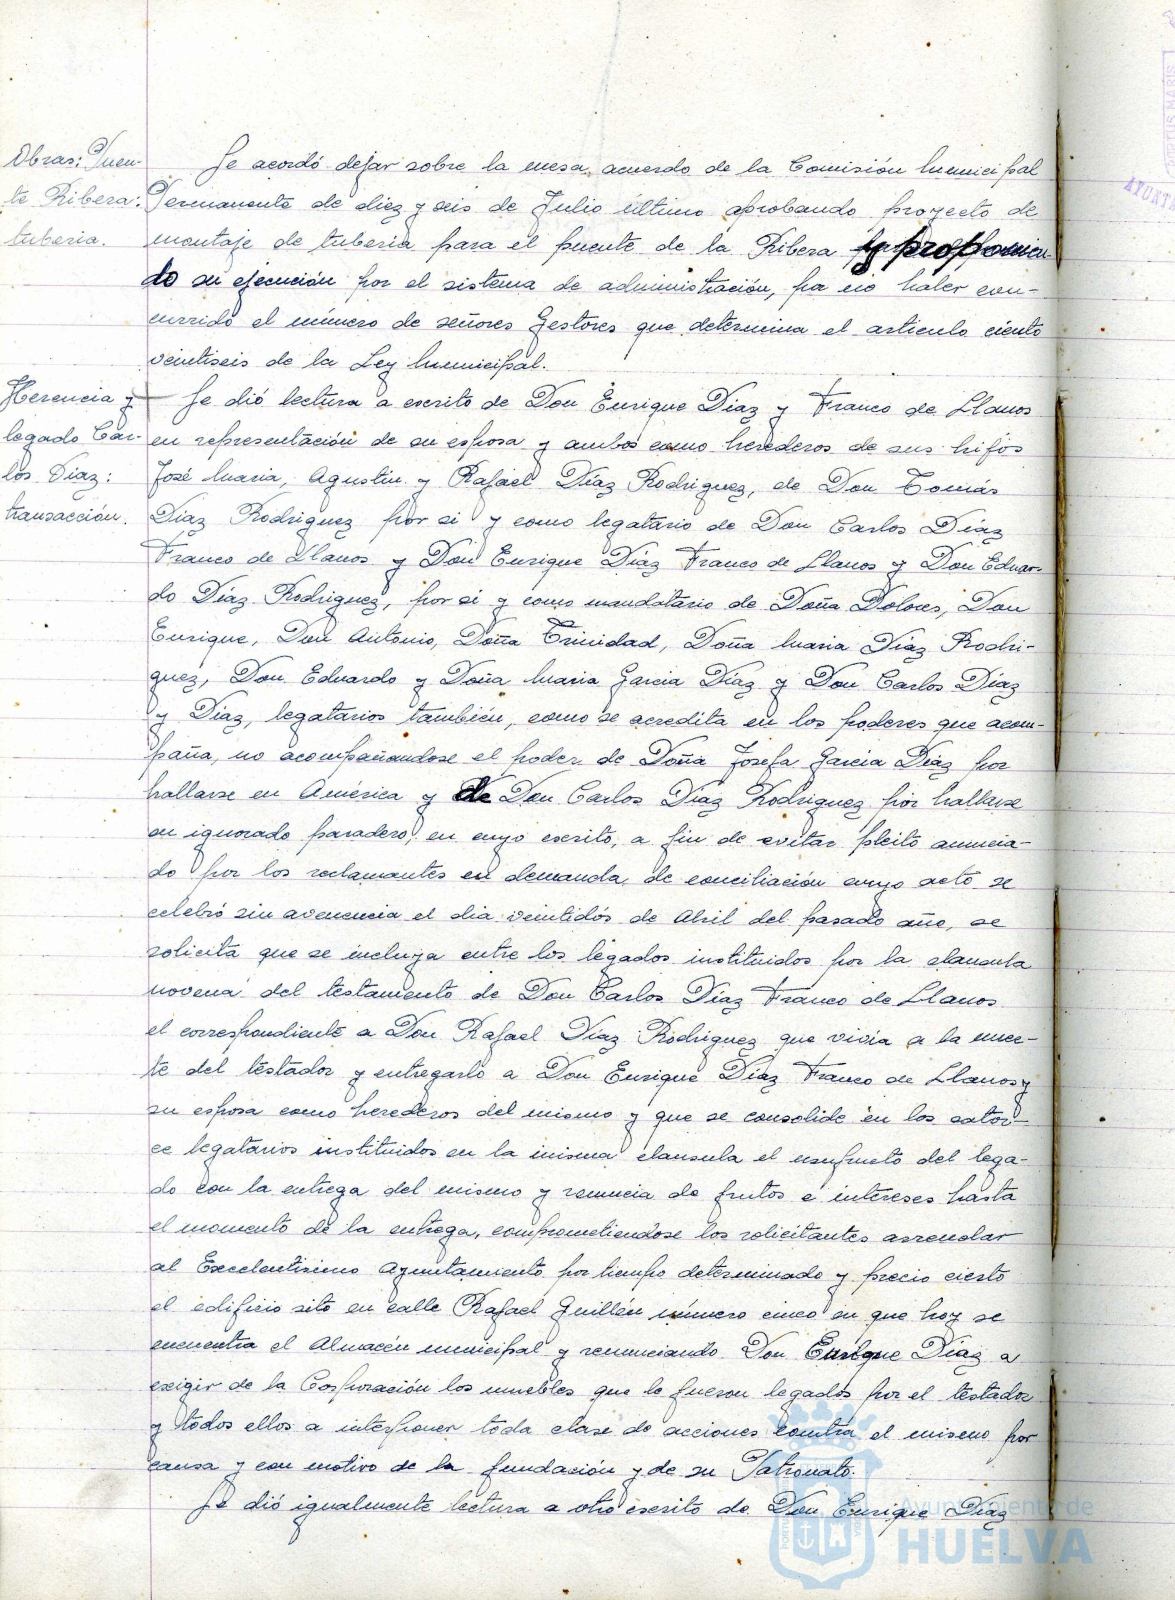 Obras: Puen-
te Ribera:
tuberia.
Se acordó dejar sobre la mesa acuerdo de la Comisión Municipal
Permanente de diez y seis de Julio último aprobando proyecto de
montaje de tuberia para el puente de la Ribera y proponien-
do su ejecución por el sistema de administración, por no haber con-
currido el número de señores Gestores que determina el articulo ciento
veintiseis de la Ley Municipal.
Herencia y
legado Car-
los Diaz:
transacción.
Se dió lectura a escrito de Don Enrique Diaz y Franco de Llanos
en representación de su esposa y ambos como herederos de sus hijos
José Maria, Agustin y Rafael Diaz Rodriguez, de Don Tomás
Diaz Rodriguez por si y como legatario de Don Carlos Diaz
Franco de Llanos y Don Enrique Diaz Franco de Llanos y Don Eduar-
do Diaz Rodriguez, por si y como mandatario de Doña Dolores, Don
Enrique, Don Antonio, Doña Trinidad, Doña Maria Diaz Rodri-
guez, Don Eduardo y Doña Maria Garcia Diaz y Don Carlos Diaz
y Diaz, legatarios también, como se acredita en los poderes que acom-
paña, no acompañandose el poder de Doña Josefa Garcia Diaz por
hallarse en América y de Don Carlos Diaz Rodriguez por hallarse
en ignorado paradero, en cuyo escrito, a fin de evitar pleito anuncia-
do por los reclamantes en demanda de conciliación cuyo acto se
celebró sin avenencia el dia veintidós de Abril del pasado año, se
solicita que se incluya entre los legados instituidos por la clausula
novena del testamento de Don Carlos Diaz Franco de Llanos
el correspondiente a Don Rafael Diaz Rodriguez que vivia a la muer-
te del testador y entregarlo a Don Enrique Diaz Franco de Llanos y
su esposa como herederos del mismo y que se consolide en los cator-
ce legatarios instituidos en la misma clausula el usufructo del lega-
do con la entrega del mismo y renuncia de frutos e intereses hasta
el momento de la entrega, comprometiendose los solicitantes arrendar
al Excelentisimo Ayuntamiento por tiempo determinado y precio cierto
el edificio sito en calle Rafael Guillén número cinco en que hoy se
encuentra el Almacén municipal y renunciando Don Enrique Diaz a
exigir de la Corporación los muebles que le fueron legados por el testador
y todos ellos a interponer toda clase de acciones contra el mismo por
causa y con motivo de la fundación y de su Patronato.
Se dió igualmente lectura a otro escrito de Don Enrique Diaz
Ayuntamiento de
HUELVA